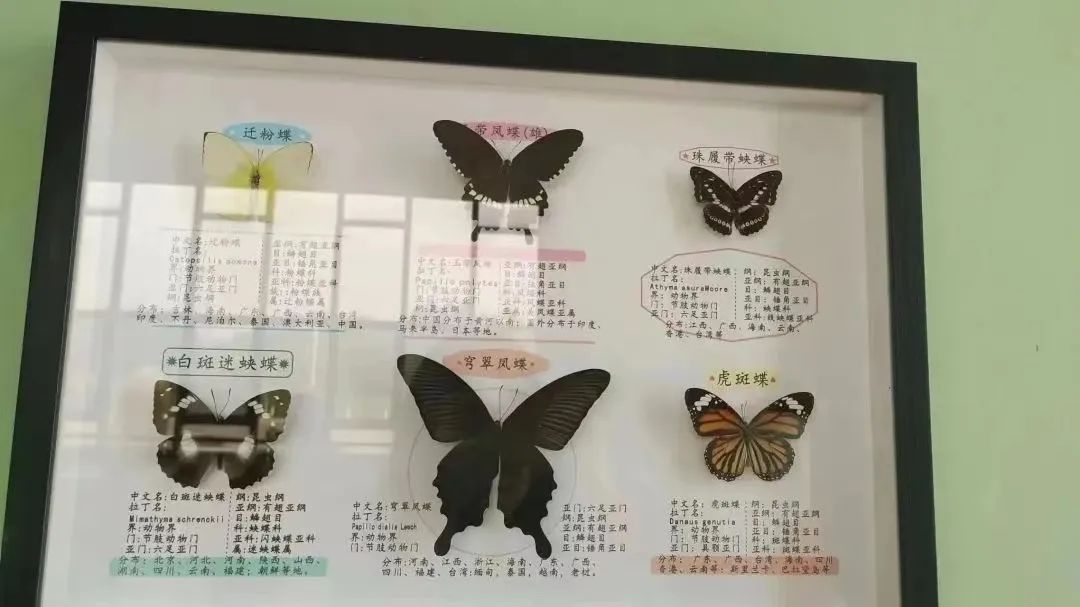 迁粉蝶
带凤蝶(雄)
珠履带蛱蝶
中文名:迁粉蝶
拉丁名:
Catopsilia pomona
界:动物界
门:节肢动物门
亚门:六足亚门
纲:昆虫纲
亚纲:有翅亚纲
目:鳞翅目
亚目:锤角亚目
科:粉蝶科
亚科:粉蝶亚科
属:迁粉蝶属
分布:吉林、海南、广东、广西、云南、台湾
印度、不丹、尼泊尔、泰国、澳大利亚、中国。
拉丁名:
Papilio polytes
亚门:六足亚门
纲:昆虫纲
亚纲:有翅亚纲
目:鳞翅目
亚目:锤角亚目
科:凤蝶科
亚科:凤蝶亚科
属:美凤蝶属
分布:中国分布于黄河以南;国外分布于印度、
马来半岛、日本等地。
中文名:珠履带蛱蝶
拉丁名:
Athyma asuraMoore
界:动物界
门:节肢动物门
亚门:六足亚门
纲:昆虫纲
亚纲:有翅亚纲
目:鳞翅目
亚目:锤角亚目
科:蛱蝶科
亚科:线蛱蝶亚科
分布:江西、广西、海南、云南、
香港、台湾等
白斑迷蛱蝶
穹翠凤蝶
虎斑蝶
中文名:白斑迷蛱蝶
拉丁名:
Mimathyma schrenckii
界:动物界
门:节肢动物门
亚门:六足亚门
纲:昆虫纲
亚纲:有翅亚纲
目:鳞翅目
科:蛱蝶科
亚科:闪蛱蝶亚科
属:迷蛱蝶属
分布:北京、河北、河南、陕西、山西、
湖南、四川、云南、福建;朝鲜等地。
中文名:穹翠凤蝶
拉丁名:
Papilio dialis Leech
界:动物界
门:节肢动物门
亚门:六足亚门
纲:昆虫纲
亚纲:有翅亚纲
目:鳞翅目
亚目:锤角亚目
分布:河南、江西、浙江、海南、广东、广西、
四川、福建、台湾;缅甸,泰国,越南,老挝。
中文名:虎斑蝶
拉丁名:
Danaus genutia
界:动物界
门:节肢动物门
亚门:具颚亚门
纲:昆虫纲
亚纲:有翅亚纲
目:鳞翅目
亚目:锤角亚目
科:斑蝶科
亚科:斑蝶亚科
分布:广东、广西、台湾、海南、四川
香港、云南等;斯里兰卡、巴厘岛等